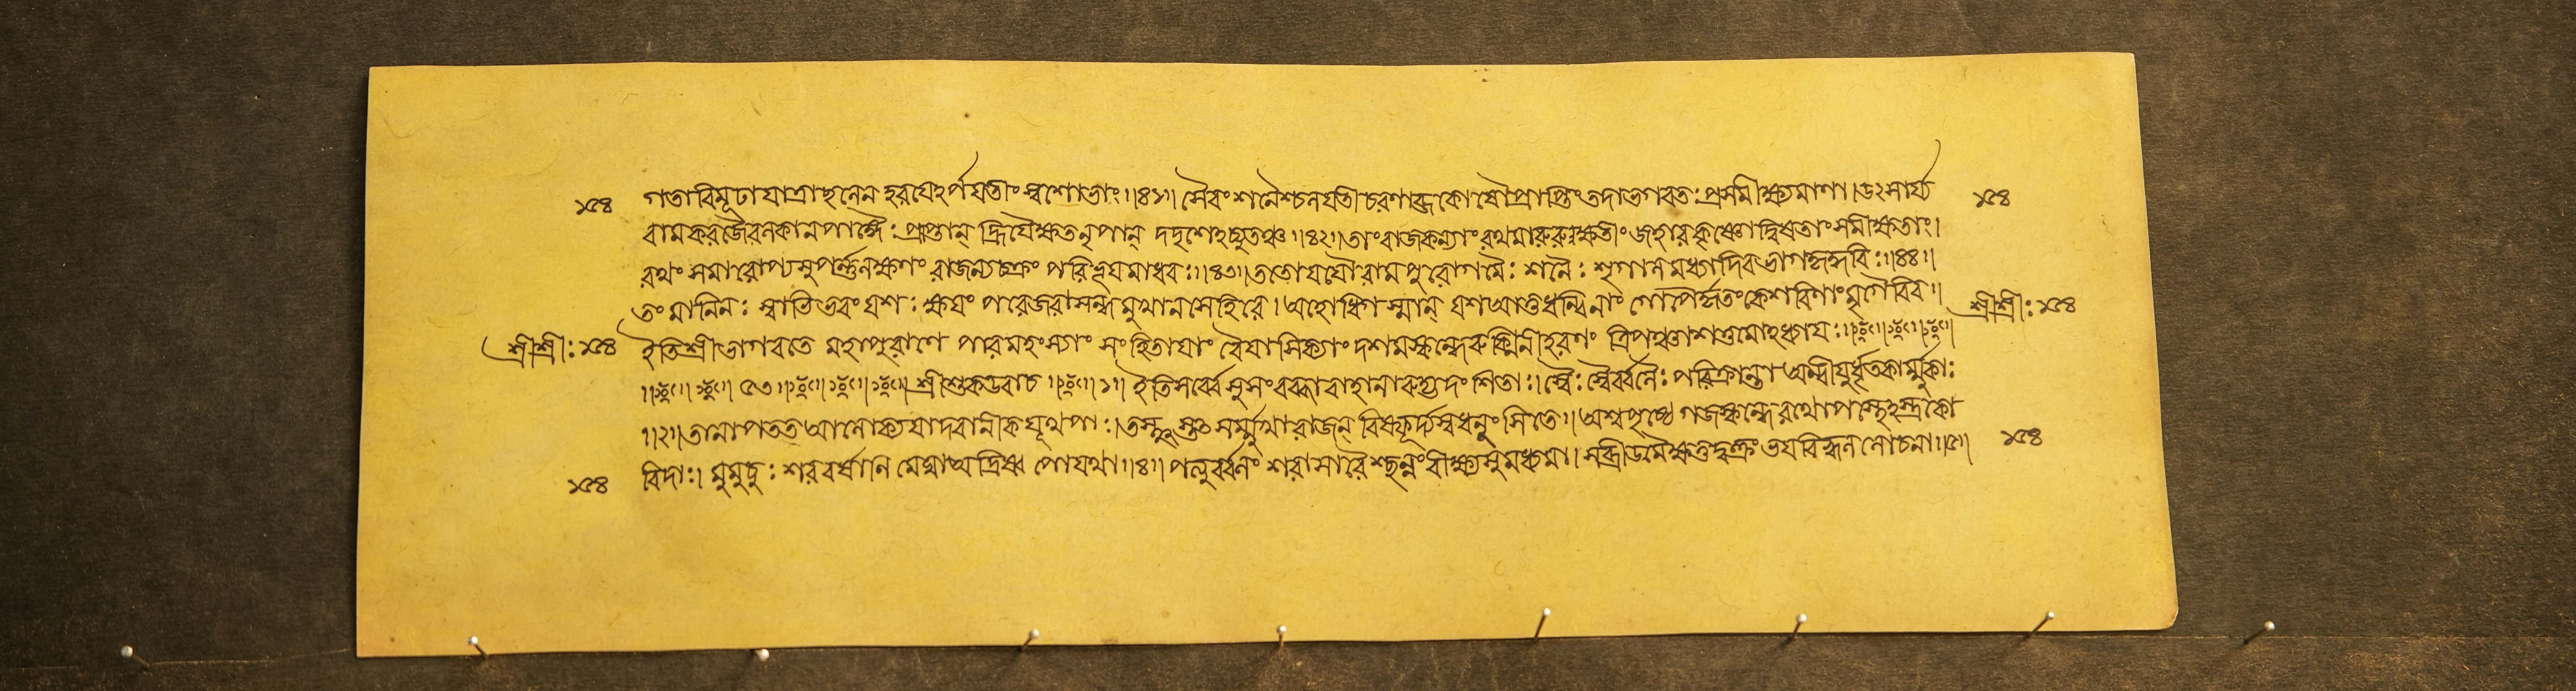 ১৫৪ গতা বিমূঢা যাত্রাছলেন হরযেঽর্পযতীং স্বশোভাং॥৪১॥ সৈবং শনৈশ্চলযতী চরণাব্জকোষৌ প্রাপ্তিং তদা ভগবতঃ প্রসমীক্ষ্যমাণা।উৎসার্য্য ১৫৪
বামকরজৈরলকানপাঙ্গৈঃ প্রাপ্তান্ হ্রিযৈক্ষত নৃপান্ দদৃশেঽচ্যুতঞ্চ॥৪২॥তাং রাজকন্যাং রথমারুরুক্ষতীং জহার কৃষ্ণো দ্বিষতাং সমীক্ষতাং।
রথং সমারোপ্য সুপর্ণলক্ষণং রাজন্যচক্রং পরিভূয মাধবঃ॥৪৩॥ততো যযৌ রামপুরোগমৈঃ শনৈঃ শৃগালমধ্যাদিব ভাগহৃদ্ধরিঃ॥৪৪॥
তং মানিনঃ স্বাভিভবং যশঃ ক্ষযং পরে জরাসন্ধমুখা ন সেহিরে।অহো ধিগস্মান্ যশ আত্তধন্বিনাং গোপৈর্হৃতং কেশরিণাং মৃগৈরিব॥ শ্রীশ্রীঃ ১৫৪
শ্রীশ্রীঃ ১৫৪ ইতি শ্রীভাগবতে মহাপুরাণে পারমহংস্যাং সংহিতাযাং বৈযাসিক্যাং দশমস্কন্ধে রুক্মিনীহরণং ত্রিপঞ্চাশত্তমোঽধ্যাযঃ॥
৫৩॥ শ্রীশুক উবাচ ॥১॥ ইতি সর্ব্বে সুসংরব্ধা বাহানারুহ্য দংশিতাঃ।স্বৈঃ স্বৈর্ব্বলৈঃ পরিক্রান্তা অন্বীযুর্ধৃতকার্ম্মুকাঃ
॥২॥তানাপতত আলোক্য যাদবানীকযূথপাঃ।তস্থুস্তৎ সম্মুখা রাজন্ বিস্ফূর্জ্য স্বধনুংসি তে॥অশ্বপৃষ্ঠে গজস্কন্ধে রথোপস্থেঽস্ত্রকো
১৫৪ বিদাঃ।মুমুচুঃ শরবর্ষানি মেঘা অদ্রিষ্বপো যথা॥৪॥ পত্যুর্ব্বলং শরাসারৈশ্ছন্নং বীক্ষ্য সুমধ্যমা।সব্রীডমৈক্ষত্তদ্বক্ত্রং ভযবিহ্বললোচনা॥৫॥ ১৫৪